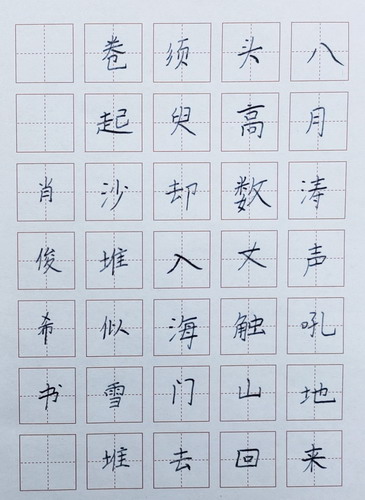 八月涛声吼地来
头高数丈触山回
须臾却入海门去
卷起沙堆似雪堆
肖俊希书